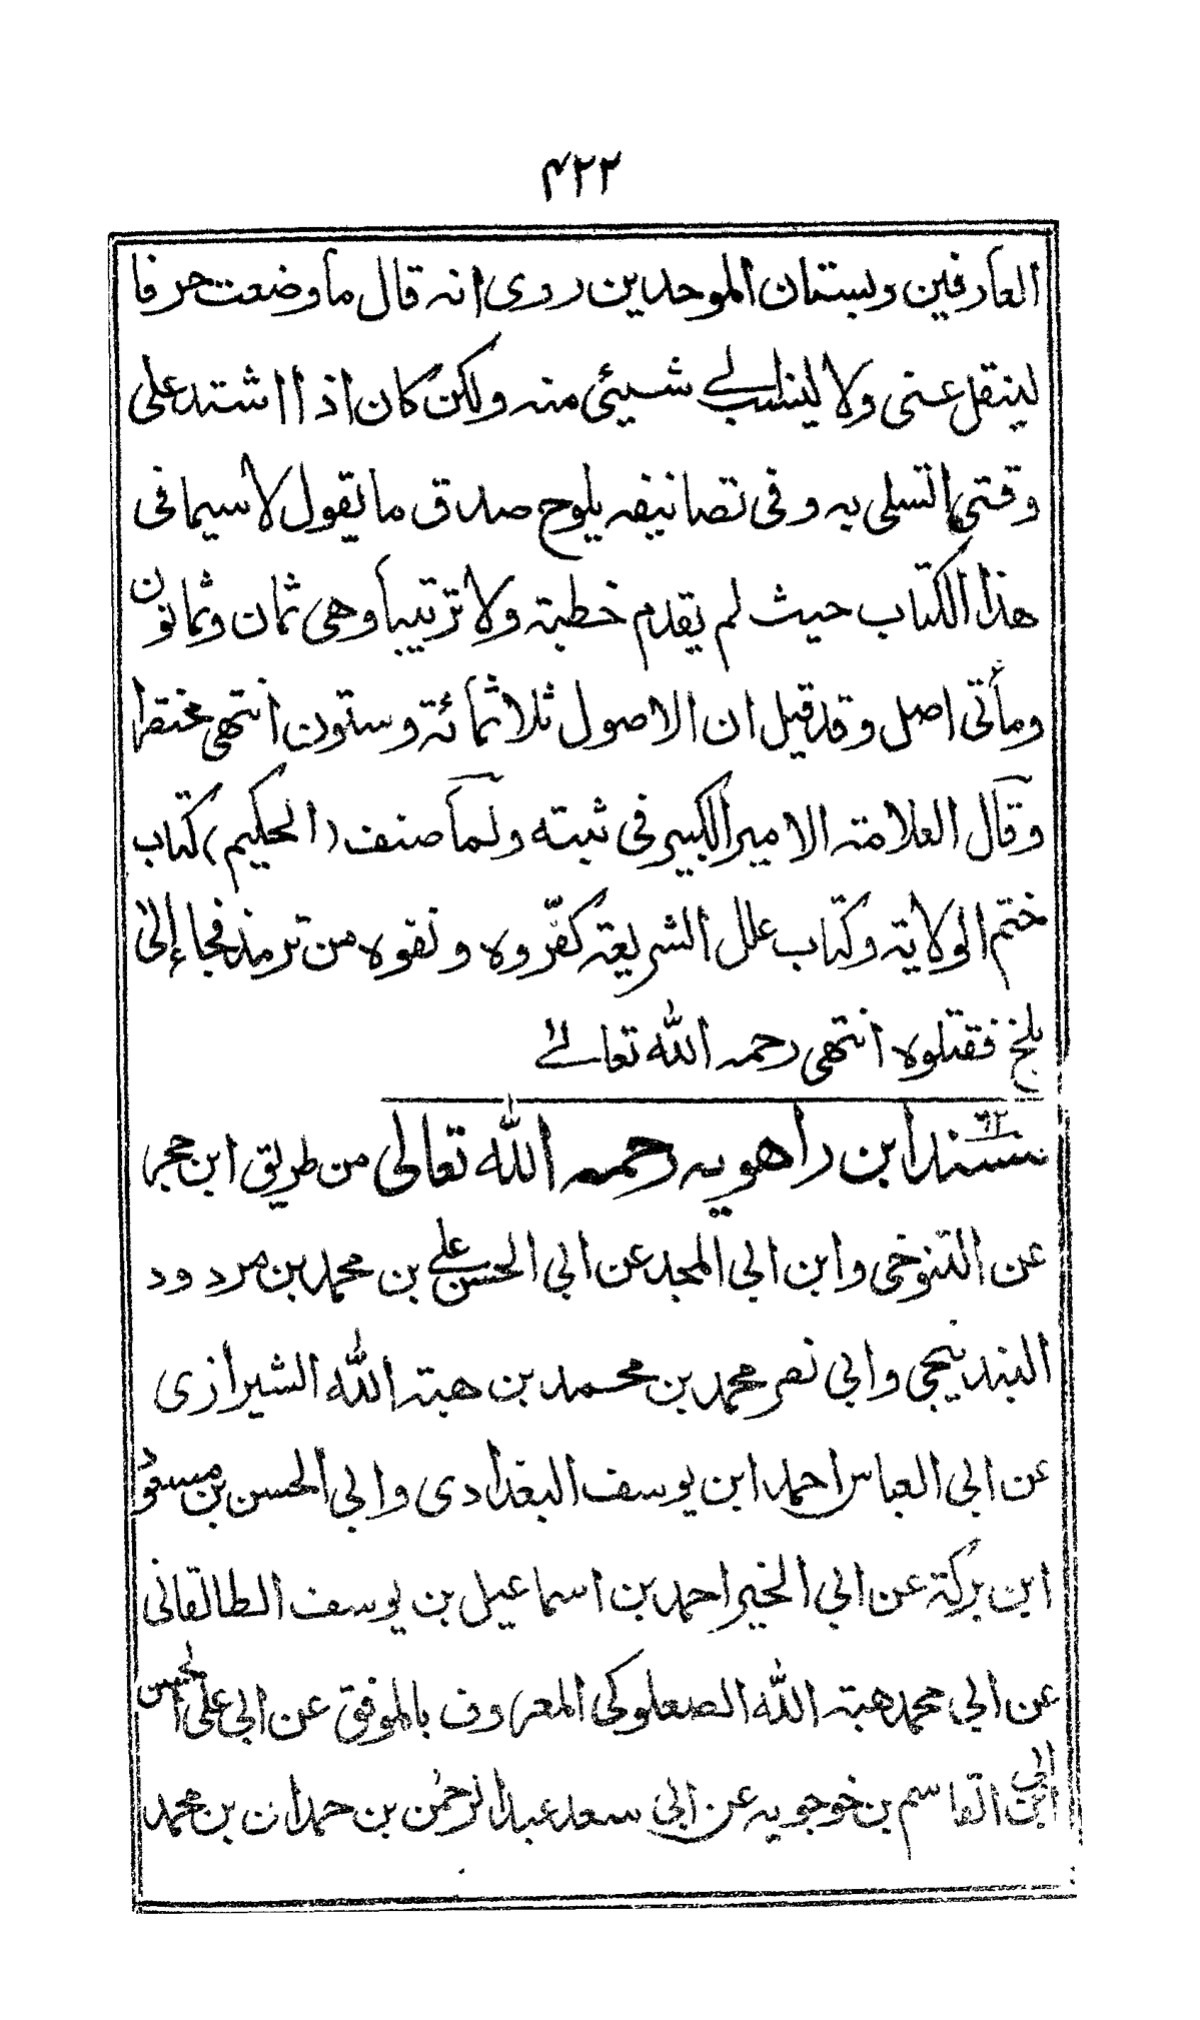 ۴۲۲
العارفين وبستان الموحدين روى انه قال ما وضعت حرفا
لينقل عنى ولا لينسب لے شيئى منه ولكن كان اذا اشتد على
وقتى اتسلى به وفى تصانيفه يلوح صدق ما يقول لا سيما فى
هذا الكتاب حيث لم يقدم خطبة ولا ترتيبا وهى ثمان وثمانون
ومأتى اصل وقد قيل ان الاصول ثلاثمائة وستون انتهى مختصرا
وقال العلامة الامير الكبير فى ثبته ولما صنف (الحكيم) كتاب
ختم الولاية وكتاب علل الشريعة كفّروه ونفوه من ترمذ فجاء إلى
بلخ فقتلوه انتهى رحمه الله تعالے
مسند ابن راهويه رحمه الله تعالى من طريق ابن حجر
عن التنوخى وابن ابى المجد عن ابى الحسن على بن محمد بن مردود
البندنيجى وابى نصر محمد بن محمد بن هبة الله الشيرازى
عن ابى العباس احمد ابن يوسف البغدادى وابى الحسن بن مسعود
ابن بركة عن ابى الخير احمد بن اسماعيل بن يوسف الطالقانى
عن ابى محمد هبة الله الصعلوكى المعروف بالموفق عن ابى على الحسن
ابن ابى القاسم بن خوجويه عن ابى سعد عبد الرحمٰن بن حمدان بن محمد